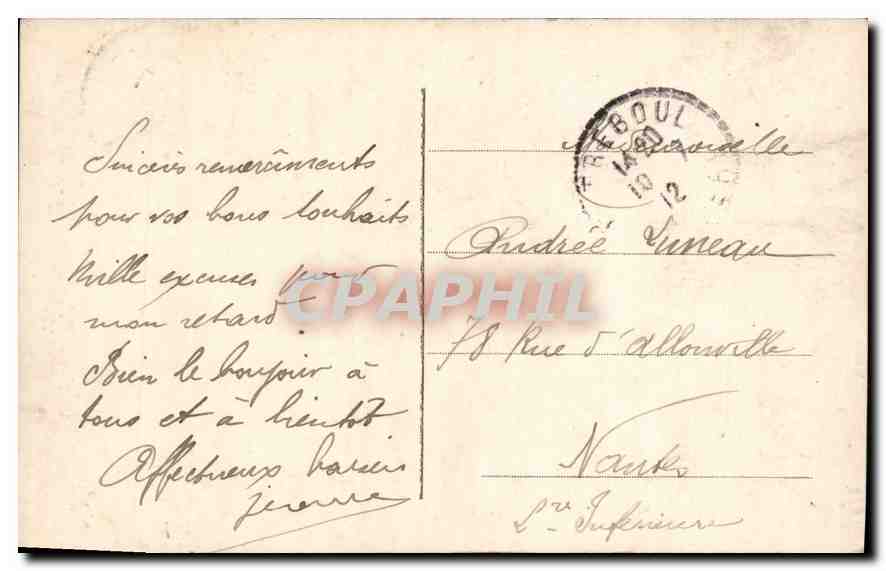 Sincères remerciements
pour vos bons souhaits
Mille excuses pour
mon retard.
Bien le bonjour à
tous et à bientôt
Affectueux baisers
TREBOUL
14 20
10 - 7
12
Mademoiselle
Andrée Luneau
78 Rue d'Allonville
Nantes
Lre Inférieure
CPAPHIL